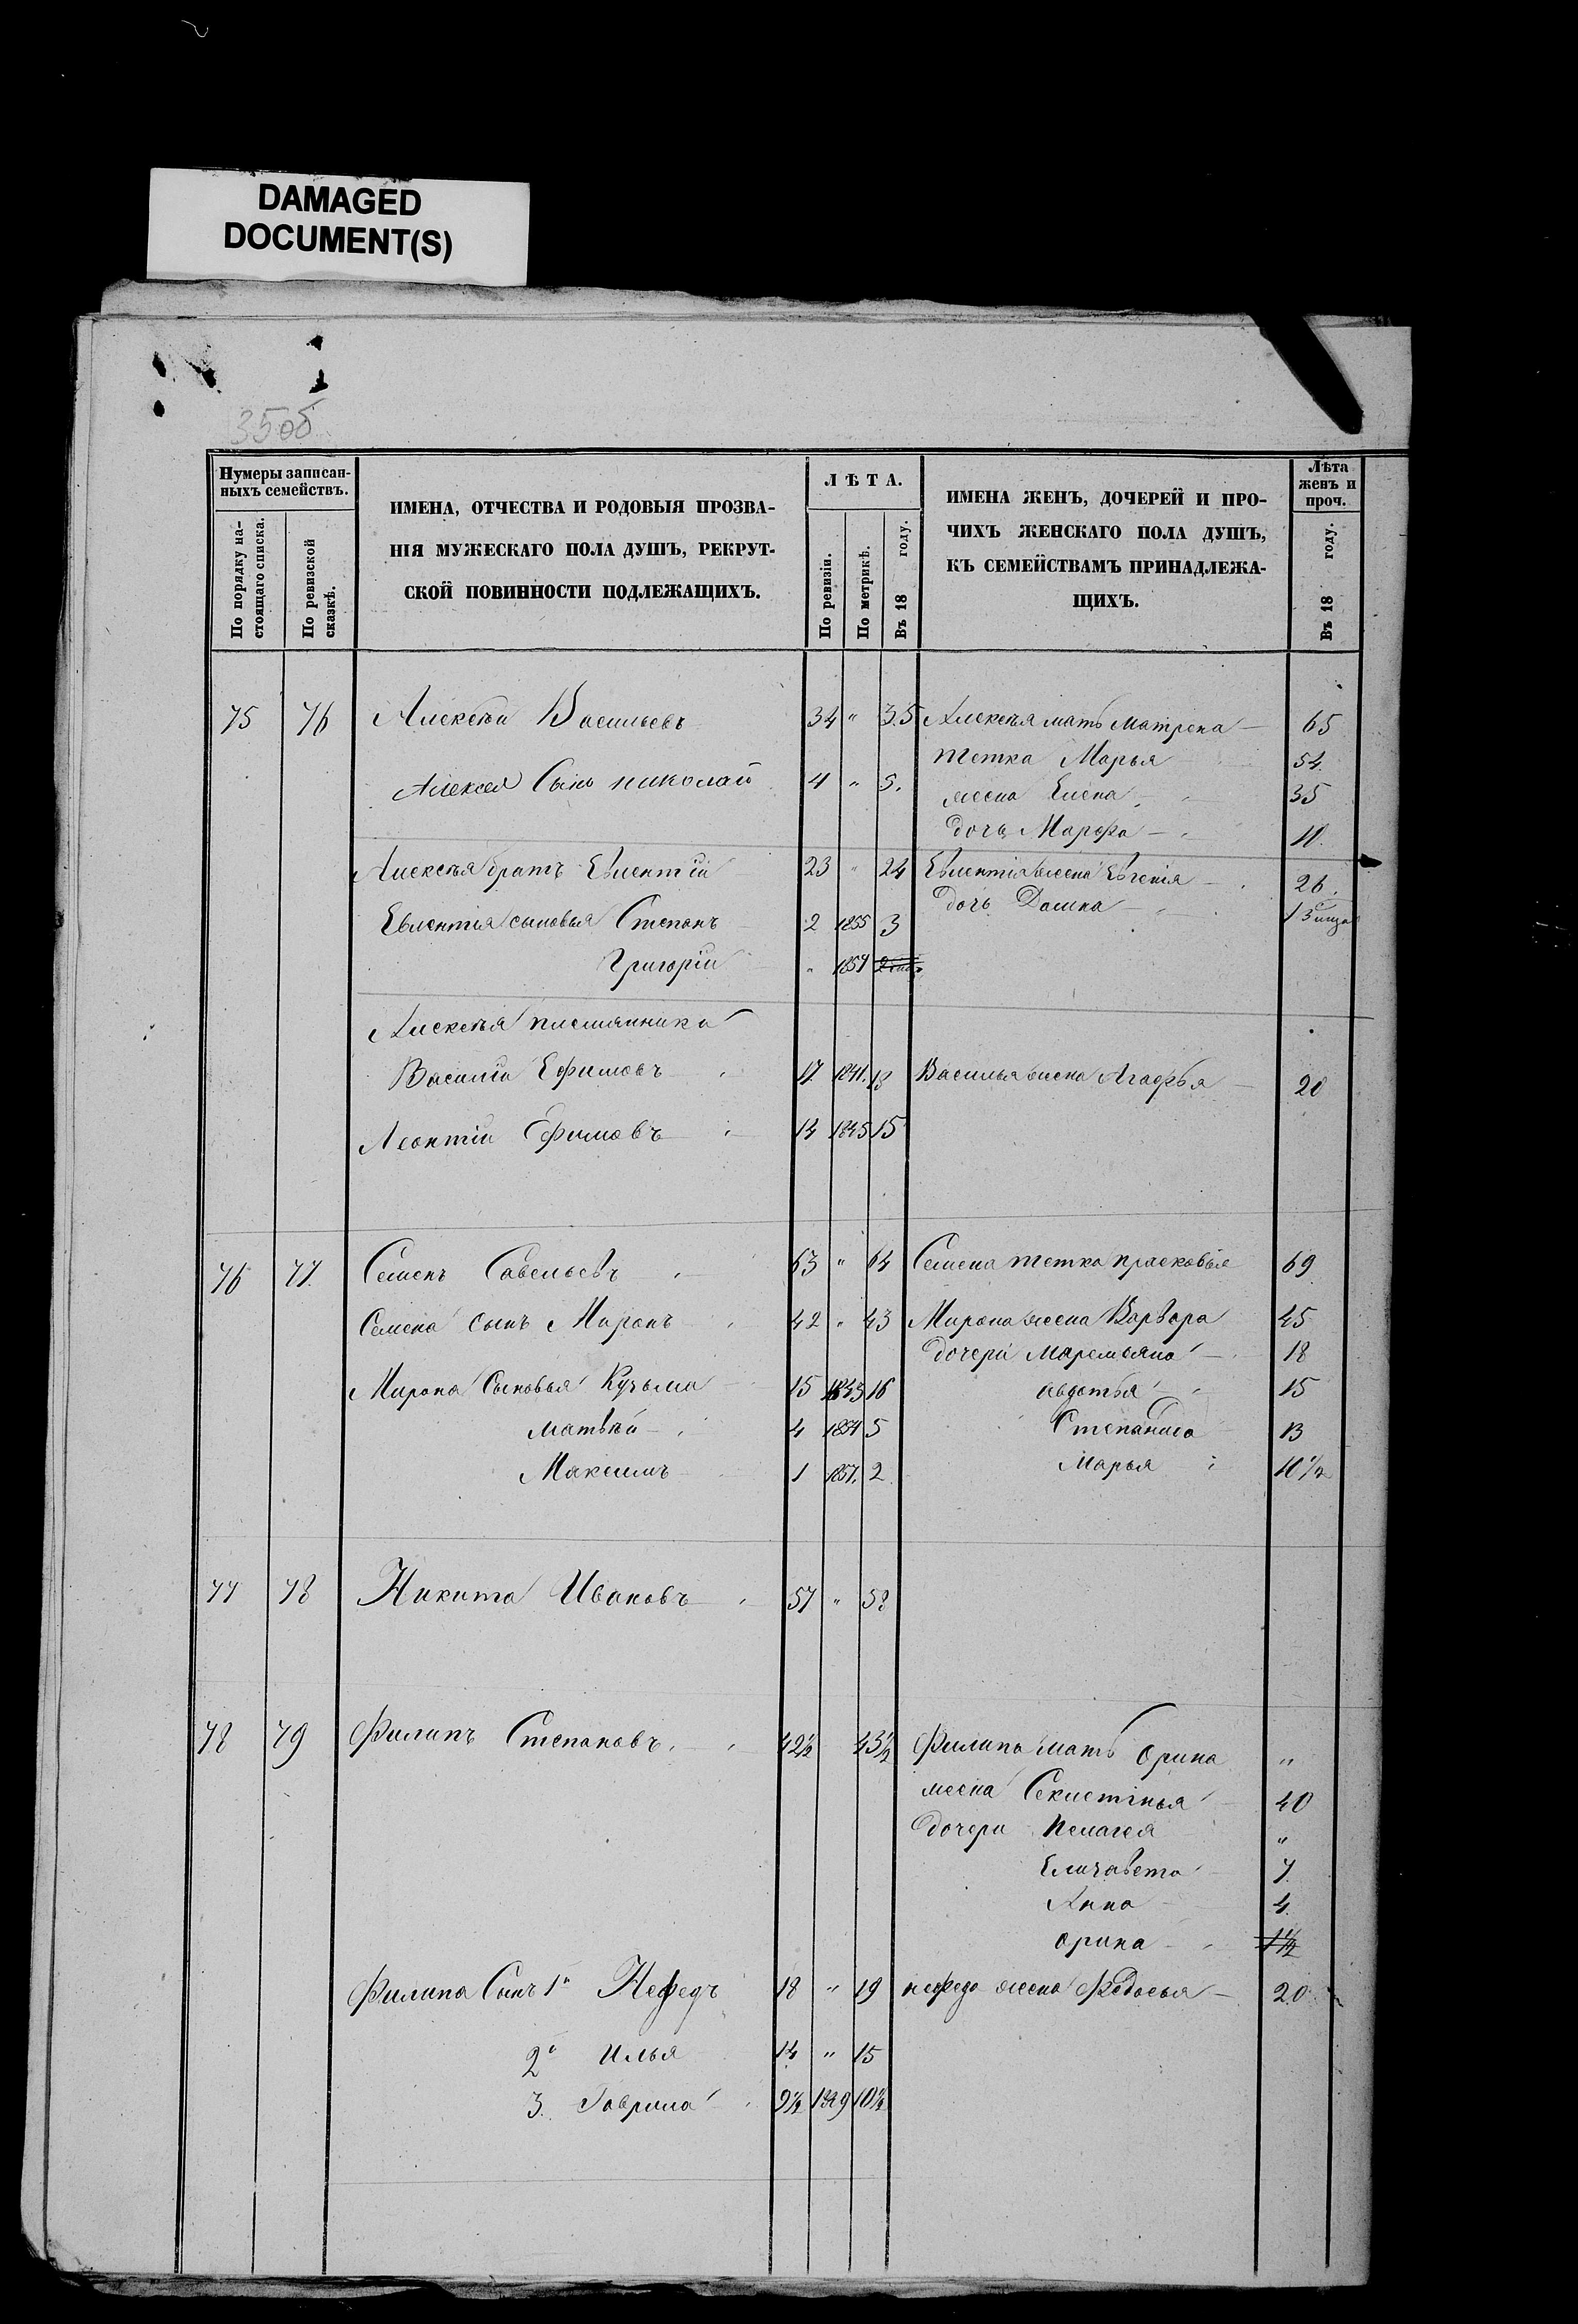 DAMAGED
DOCUMENT(S)
35об
Нумеры записан-
ныхъ семействъ.
По порядку на-
стоящаго списка.
По ревизской
сказкѣ.
ИМЕНА, ОТЧЕСТВА И РОДОВЫЯ ПРОЗВА-
НІЯ МУЖЕСКАГО ПОЛА ДУШЪ, РЕКРУТ-
СКОЙ ПОВИННОСТИ ПОДЛЕЖАЩИХЪ.
ЛѢТА.
По ревизіи.
По метрикѣ.
Въ 18 году.
ИМЕНА ЖЕНЪ, ДОЧЕРЕЙ И ПРО-
ЧИХЪ ЖЕНСКАГО ПОЛА ДУШЪ,
КЪ СЕМЕЙСТВАМЪ ПРИНАДЛЕЖА-
ЩИХЪ.
Лѣта
женъ и
проч.
Въ 18 году.
75 76 Алексѣй Васильевъ 34 " 35 Алексѣя мать Матрена 65
тетка Марья 54
Алексея Сынъ николай 4 " 5. жена Елена 35
дочь Марфа 11.
Алексѣя братъ Евлентій 23 " 24 Евлентія жена Евгенія 26.
дочь Домна
Евлентія сыновья Степанъ 2 1855 3
Григорій "
Алексѣя племянники
Василій Ефимовъ 17. 1841. 18 Василья жена Агафья 20
Леонтій Ефимовъ 14 1845 15
76 77. Семенъ Савельевъ 63 " 64 Семена тетка прасковья 69
Семена сынъ Миронъ 42 " 43 Мирона жена Варвара 45
дочери Маремьяна 18
Мирона Сыновья Кузьма 15 1843 16 авдотья 15
матвѣй 4 1854 5 Степанида 13
Максимъ 1 1857. 2 Марья 10 1/2
77 78 Никита Ивановъ 57 " 58
78 79 Филипъ Степановъ. 42½ 43½ Филипа мать Орина "
жена Секлетинья 40
дочери Пелагея "
Елизавета 7.
Анна 4.
Орина 1½
Филипа Сынъ 1й Нефедъ 18 " 19 нефеда жена Федосья 20
2й Илья 14 " 15
3. Гаврила 9½ 1849 10½